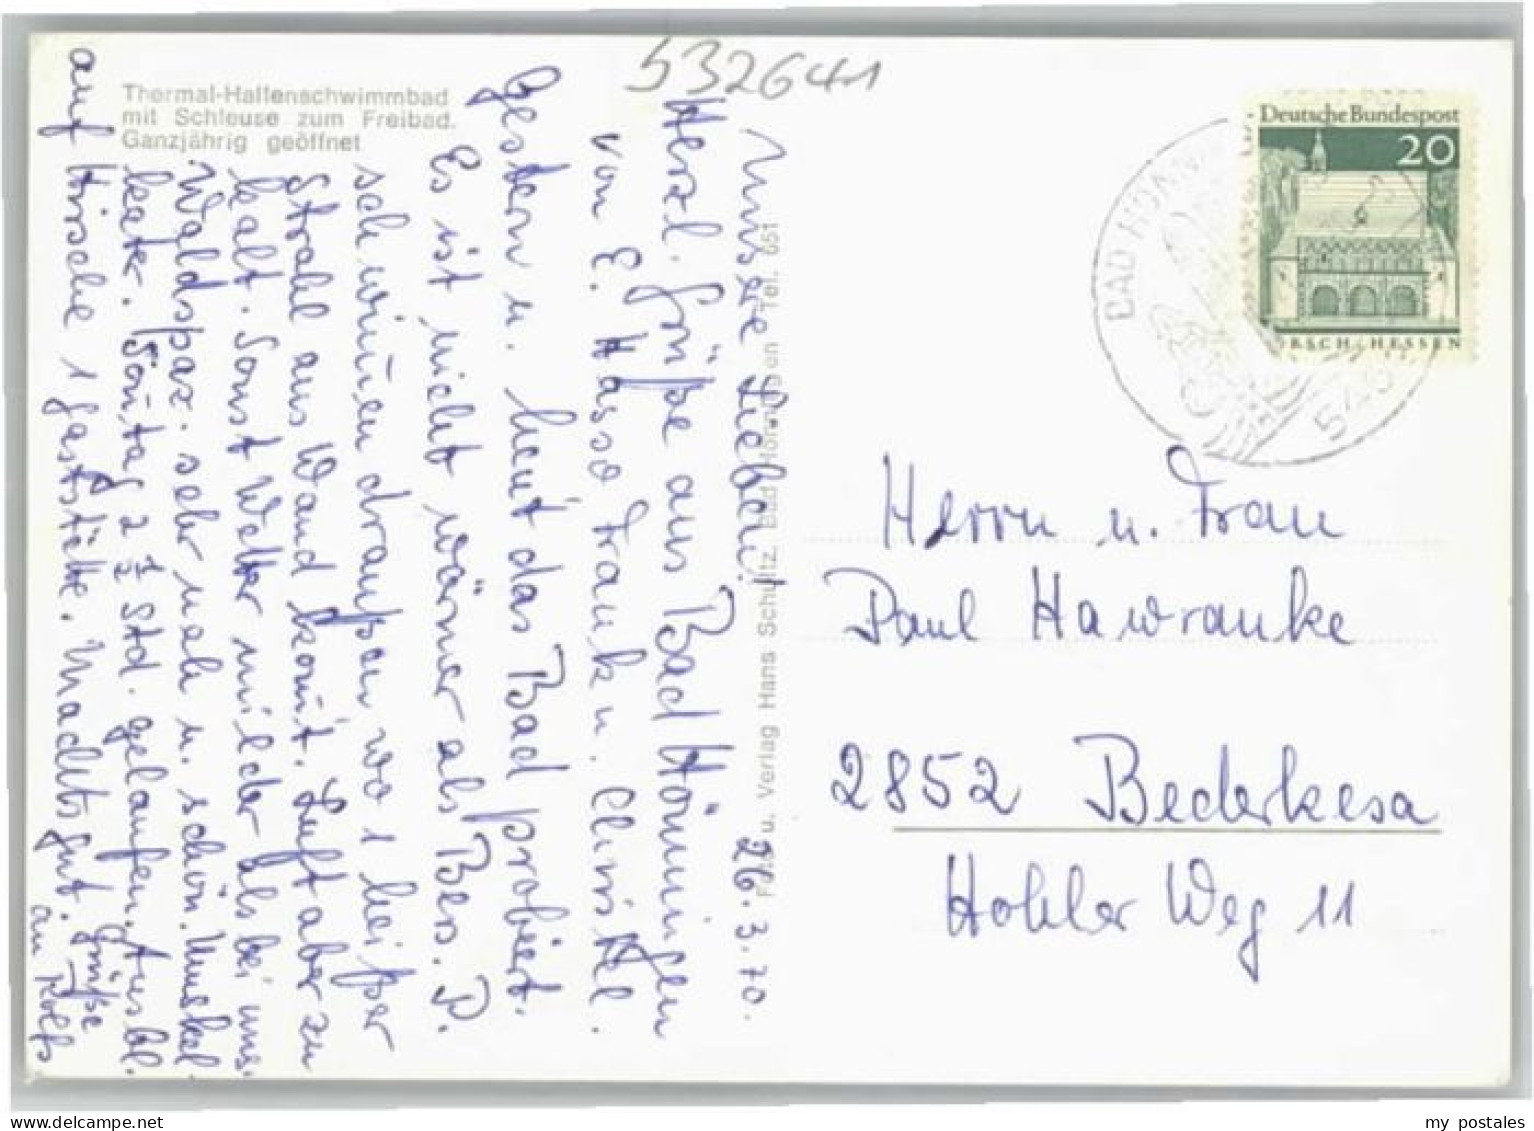 532641
Thermal-Hallenschwimmbad
mit Schleuse zum Freibad.
Ganzjährig geöffnet
Unsere Lieben! 26.3.70.
Herzl. Grüße aus Bad Hönningen
von E. Hasso Frank u. Christel.
Gestern u. heut das Bad probiert.
Es ist nicht wärmer als Bers. P.
schwimmen draußen wo 1 heißer
Strahl aus Wand kommt. Luft aber zu
kalt. Sonst Wetter milder als bei uns.
Waldspaz. sehr nah u. schön. Muskel
kater. Sonntag 2 1/2 Std. gelaufen. Ausbl.
auf Hirsche 1 Gaststätte. Machts gut. Grüße
an Rolfs
u. Verlag Hans Schultz, Bad Hönningen Tel. 651
Deutsche Bundespost
20
LORSCH / HESSEN
BAD HÖNN
Herrn u. Frau
Paul Hawranke
2852 Bederkesa
Hohler Weg 11
my postales